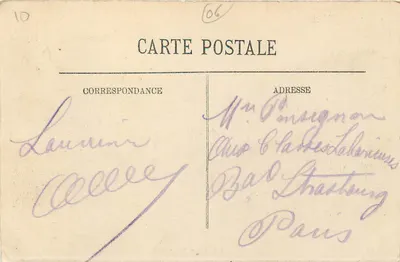 10
06
CARTE POSTALE
CORRESPONDANCE
ADRESSE
Mr Ponsignon
Aux Classes Laborieuses
Bd Strasbourg
Paris